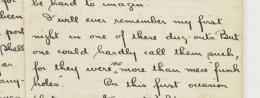 be hard to imagin.
I will ever remember my first
night in one of these dug-outs. But
one could hardly call them such,
for they were no more than mere "funk
holes". On this first occasion